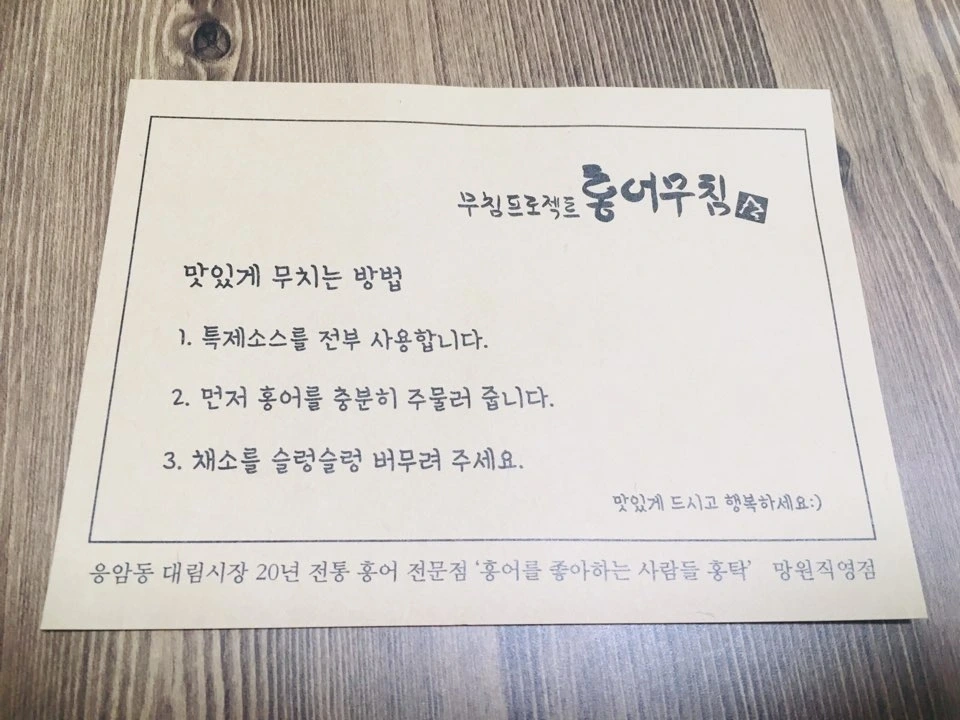 무침프로젝트 홍어무침
맛있게 무치는 방법
1. 특제소스를 전부 사용합니다.
2. 먼저 홍어를 충분히 주물러 줍니다.
3. 채소를 슬렁슬렁 버무려 주세요.
맛있게 드시고 행복하세요:)
응암동 대림시장 20년 전통 홍어 전문점 '홍어를 좋아하는 사람들 홍탁' 망원직영점